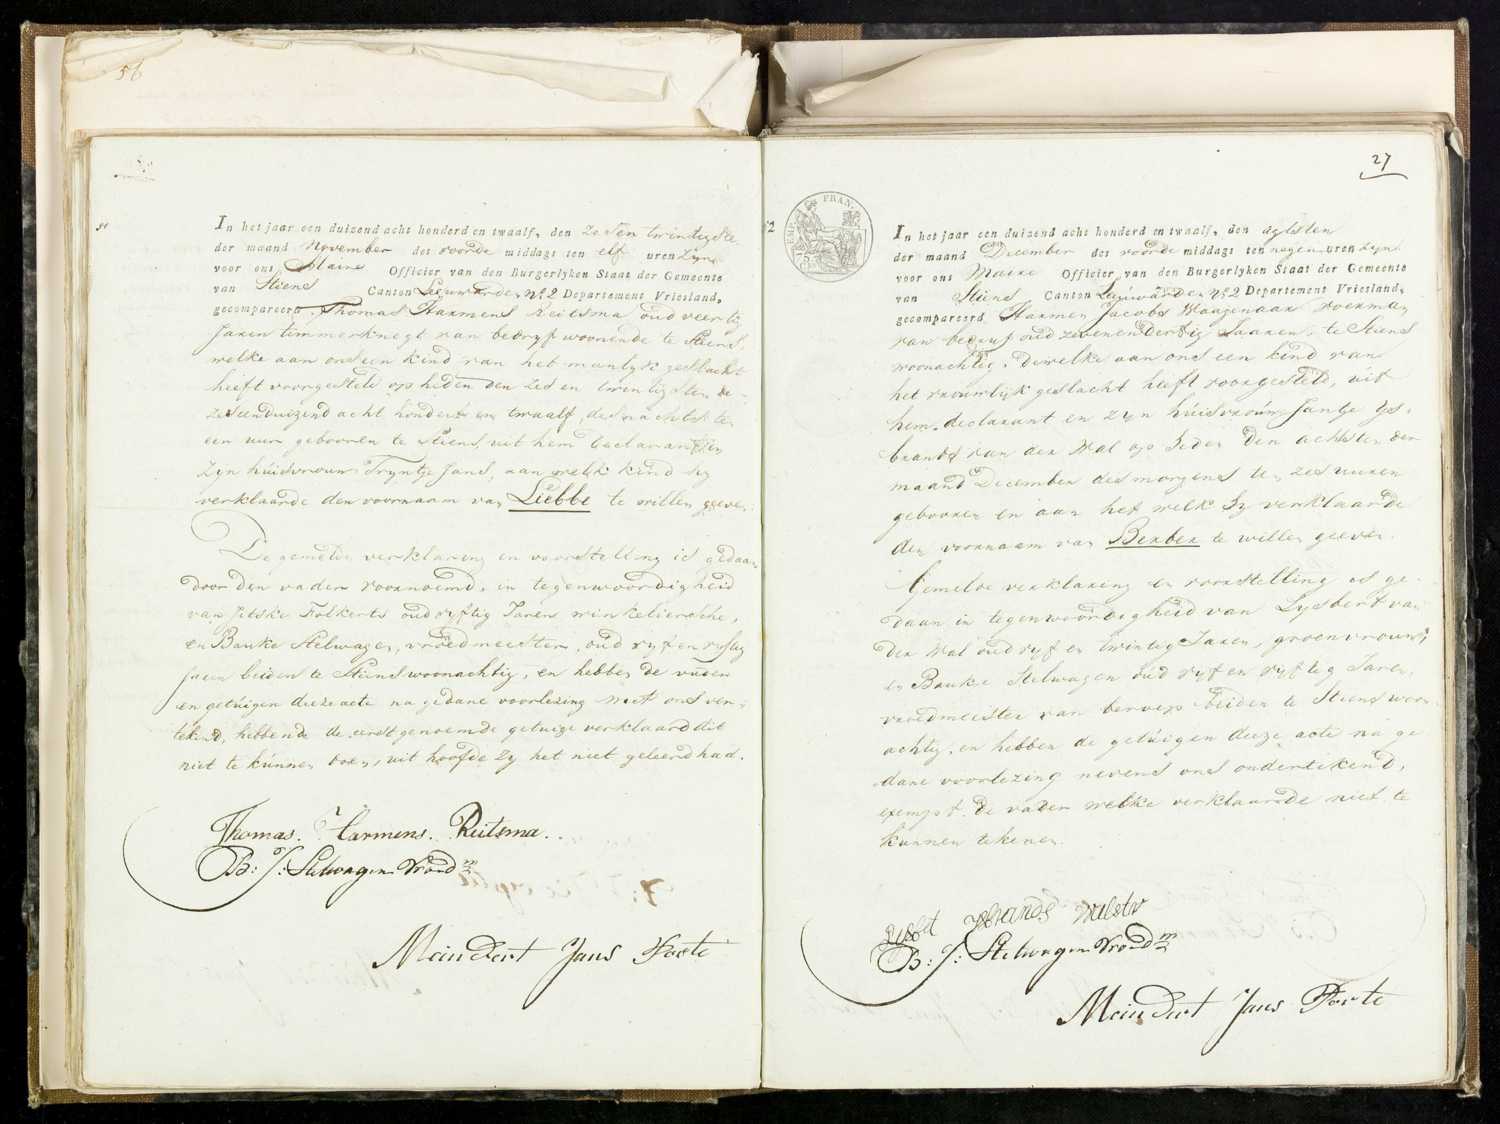 56
51
In het jaar een duizend acht honderd en twaalf, den zes en twintigste
der maand November des voorde middags ten elf uren zyn
voor ons Maire Officier van den Burgerlyken Staat der Gemeente
van Stiens Canton Leeuwarden No. 2 Departement Vriesland,
gecompareerd Thomas Harmens Reitsma oud veertig
Jaren timmerknegt van bedryf woonende te Stiens
welke aan ons een kind van het manlyk geslacht
heeft voorgesteld op heden den zes en twintigsten de-
zes eenduizend acht honderd en twaalf, des nachts ten
een uur gebooren te Stiens uit hem declarant en
zyn huisvrouw Tryntje Jans, aan welk kind hy
verklaarde den voornaam van Liebbe te willen geeven.
De gemelde verklaring en voorstelling is gedaan
door den vader voornoemd, in tegenwoordigheid
van Jetske Folkerts oud vyftig Jaren winkeliersche,
en Bauke Stelwagen, vroedmeester, oud vyf en vyftig
Jaren beiden te Stiens woonachtig, en hebben de vader
en getuigen deeze acte na gedane voorlezing met ons ver-
tekend, hebbende de eerstgenoemde getuige verklaard dit
niet te kunnen doen, uit hoofde zy het niet geleerd had.
Thomas. Harmens. Reitsma..
B: J: Stelwagen Vroedm
Meindert Jans Poorte
27
52
EMP. FRAN.
In het jaar een duizend acht honderd en twaalf, den agtsten
der maand December des voorde middags ten negen uren zyn
voor ons Maire Officier van den Burgerlyken Staat der Gemeente
van Stiens Canton Leeuwarden No. 2 Departement Vriesland,
gecompareerd Harmen Jacobs Waagenaar voerman
van bedryf oud zevenendertig Jaaren te Stiens
woonachtig, dewelke aan ons een kind van
het vrouwlyk geslacht heeft voorgesteld, uit
hem declarant en zyn huisvrouw Jantje Ys-
brands van der Wal op heden den achtsten der
maand December des morgens ten zes uuren
gebooren en aan het welk hy verklaarde
den voornaam van Berber te willen geeven.
Gemelde verklaring en voorstelling is ge-
daan in tegenwoordigheid van Lysbert van
der Wal oud vyf en twintig Jaren, groenvrouw,
en Bauke Stelwagen oud vyf en vyftig Jaren,
vroedmeester van beroep beiden te Stiens woon-
achtig, en hebben de getuigen deeze acte na ge-
dane voorlezing nevens ons ondertekend,
exempt de vader welke verklaarde niet te
kunnen tekenen.
B: J: Stelwagen Vroedm
Meindert Jans Poorte